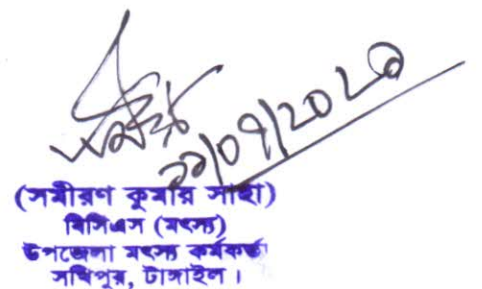 (সমীরণ কুমার সাহা)
বিসিএস (মৎস্য)
উপজেলা মৎস্য কর্মকর্তা
সখিপুর, টাঙ্গাইল।